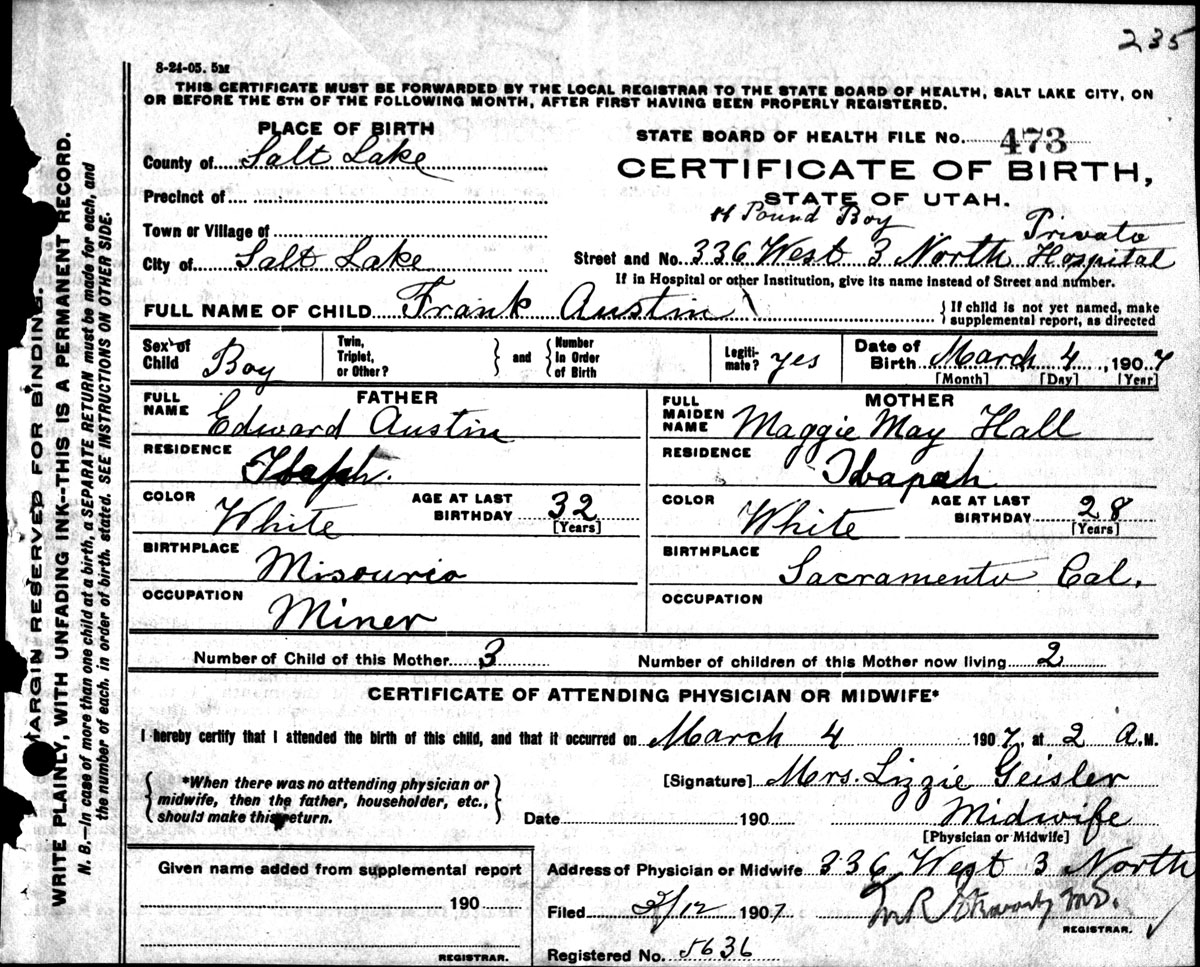 235
8-24-05. 5M
THIS CERTIFICATE MUST BE FORWARDED BY THE LOCAL REGISTRAR TO THE STATE BOARD OF HEALTH, SALT LAKE CITY, ON
OR BEFORE THE 5TH OF THE FOLLOWING MONTH, AFTER FIRST HAVING BEEN PROPERLY REGISTERED.
PLACE OF BIRTH
STATE BOARD OF HEALTH FILE No. 473
County of Salt Lake
CERTIFICATE OF BIRTH,
Precinct of
STATE OF UTAH.
Pound Boy Private
Town or Village of
City of Salt Lake
Street and No. 336 West 3 North Hospital
If in Hospital or other Institution, give its name instead of Street and number.
FULL NAME OF CHILD Frank Austin
If child is not yet named, make
supplemental report, as directed
Sex of Child Boy
Twin, Triplet, or Other?
and
Number In Order of Birth
Legiti-mate? yes
Date of Birth March 4, 1907
[Month] [Day] [Year]
FATHER
FULL NAME Edward Austin
RESIDENCE Ibapah.
COLOR White
AGE AT LAST BIRTHDAY 32
[Years]
BIRTHPLACE Misourio
OCCUPATION Miner
MOTHER
FULL MAIDEN NAME Maggie May Hall
RESIDENCE Ibapah
COLOR White
AGE AT LAST BIRTHDAY 28
[Years]
BIRTHPLACE Sacramento Cal.
OCCUPATION
Number of Child of this Mother 3
Number of children of this Mother now living 2
CERTIFICATE OF ATTENDING PHYSICIAN OR MIDWIFE*
I hereby certify that I attended the birth of this child, and that it occurred on March 4 1907, at 2 A.M.
*When there was no attending physician or
midwife, then the father, householder, etc.,
should make this return.
[Signature] Mrs. Lizzie Geisler
Date 190 Midwife
[Physician or Midwife]
Given name added from supplemental report
190
REGISTRAR.
Address of Physician or Midwife 336 West 3 North
Filed 3/12 1907 M.D.
REGISTRAR.
Registered No. 5636
MARGIN RESERVED FOR BINDING.
WRITE PLAINLY, WITH UNFADING INK--THIS IS A PERMANENT RECORD.
N. B.—In case of more than one child at a birth, a SEPARATE RETURN must be made for each, and
the number of each, in order of birth, stated. SEE INSTRUCTIONS ON OTHER SIDE.